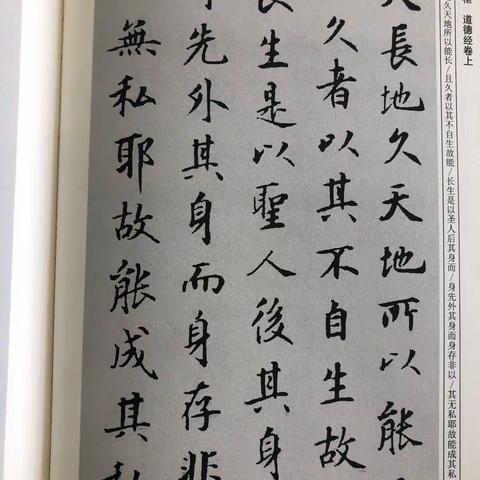 道德经卷上
久天地所以能长/且久者以其不自生故能/长生是以圣人后其身而/身先外其身而身存非以/其无私耶故能成其私
天長地久天地所以能
久者以其不自生故
長生是以聖人後其身
先外其身而身存非
無私耶故能成其私